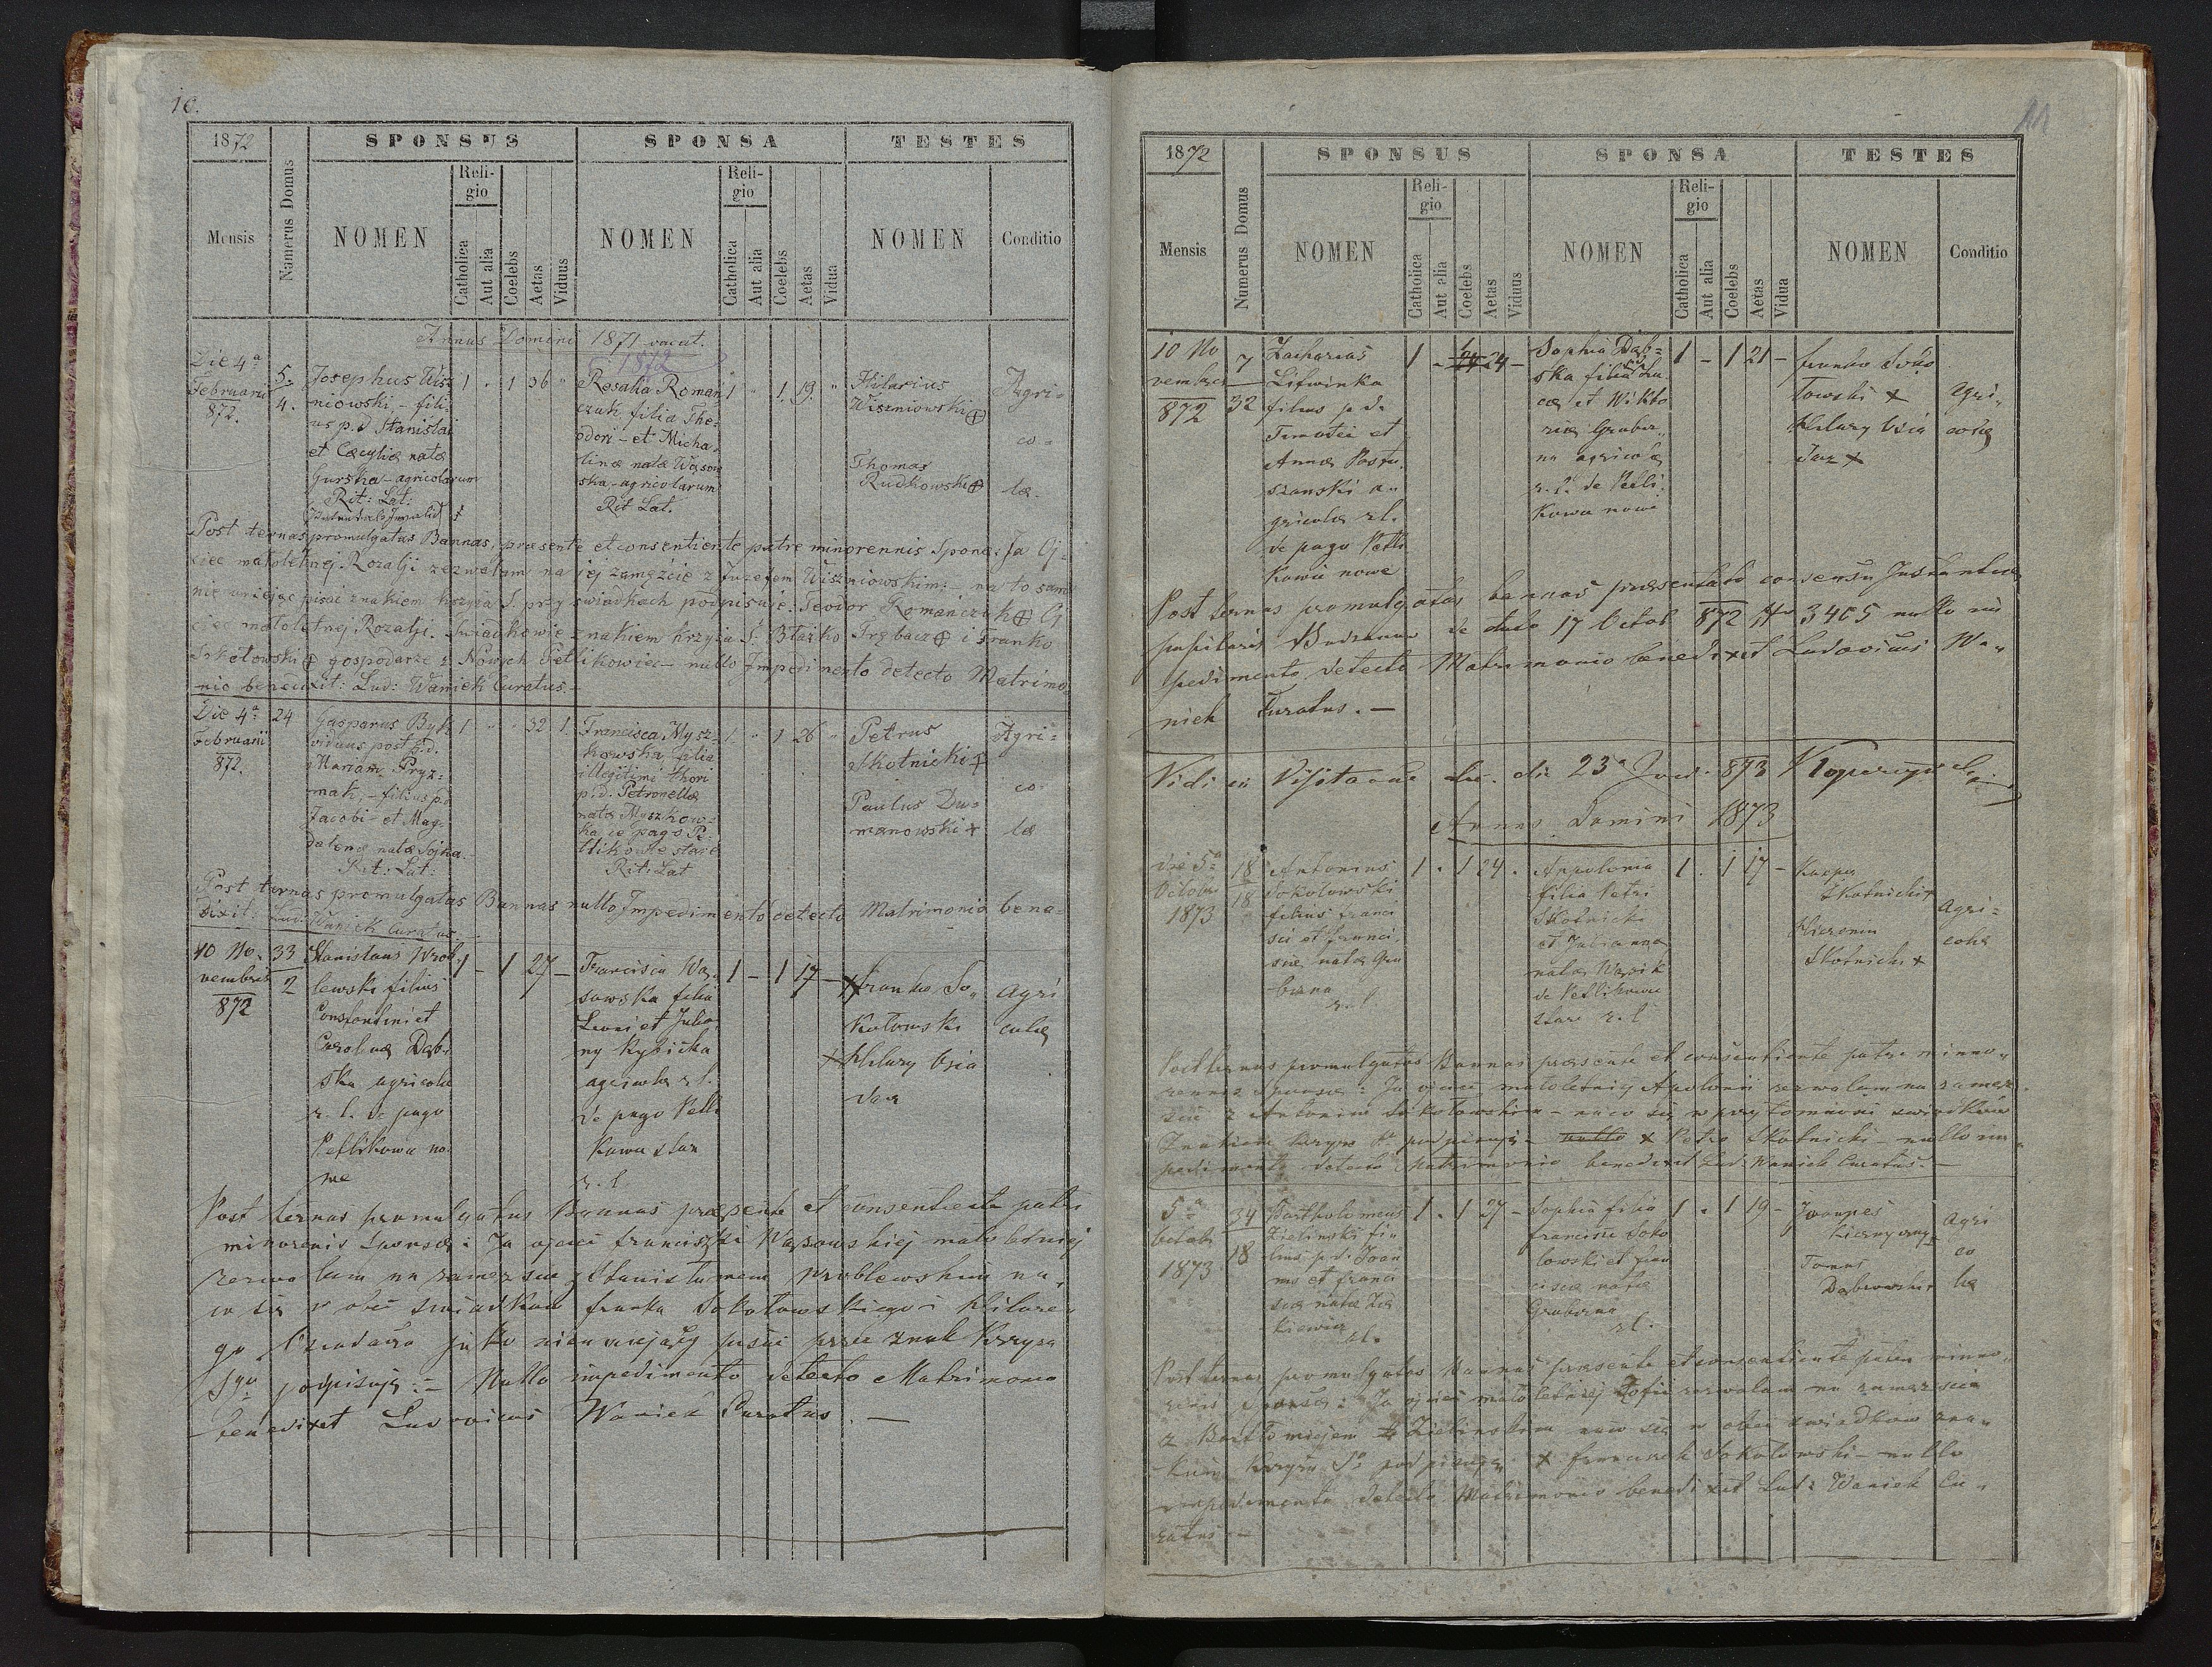 10.
1872
SPONSUS
SPONSA
TESTES
Mensis
Numerus Domus
NOMEN
Reli-
gio
Catholica
Aut alia
Coelebs
Aetas
Viduus
NOMEN
Reli-
gio
Catholica
Aut alia
Coelebs
Aetas
Vidua
NOMEN
Conditio
Annus Domini 1871 vacat.
1872
Die 4ª
Februarii
872.
5.
4.
Josephus Wisz
niowski, - fili
us p.d Stanislai
et Cæcyliæ natæ
Gurska - agricolarum
Rit: Lat:
1 " 1 36 "
Rosalia Romań
czuk filia The=
odori - et Micha
linæ natæ Wąsow
ska - agricolarum
Rit Lat.
1 " 1. 19. "
Hilarius
Wiszniowski
Thomas
Rudkowski
Agri=
co =
læ.
Post ternas promulgatas Bannas, præsente et consentiente patre minorennis Sponsæ: Ja Oj=
ciec małoletniej Rozalji zezwalam na jej zamęzcie z Juzefem Wiszniowskim: na to sam
nie umiejąc pisać znakiem krzyża S. przy świadkach podpisuje: Teodor Romańczuk Oj
ciec małoletnej Rozalji. Świadkowie znakiem krzyża S. Błażko Trębacz i Franko
Sokołowski gospodarze z Nowych Petlikowiec - nullo Impedimento detecto Matrimo
nio benedixit: Lud: Waniek Curatus -
Die 4ª
Februarii
872.
24
Gasparus Byk
viduus post p.d.
Mariam Pryz=
mak, - filius p.d
Jacobi - et Mag=
dalenæ natæ Sojka.
Rit: Lat:
1 " " 32 1.
Francisca Mysz=
kowska, filia
illegitimi thori
p.d. Petronellæ
natæ Myszkow=
ka, de pago Pe=
tlikowie stare
Rit: Lat
1 " 1 26 "
Petrus
Skotnicki +
Paulus Du=
manowski +
Agri=
co
læ
Post ternas promulgatas Bannas nullo Impedimento detecto Matrimonio bene=
dixit: Lud: Waniek Curatus.
10 No
vembris
872
33
2
Stanislaus Wrob
lewski filius
Constantini et
Carolinæ Dąb
ska agricolæ
r. l. de pago
Petlikowce no
we
1 - 1 27 -
Francisca Wą
sowska filia
Leoni et Julia
ny Rybicka
agricolæ r l.
de pago Petli
kowce stare
r. l
1 - 1 17 -
+ Franko So
kołowski
+ Hilary Osia
dacz
Agri
colæ
Post ternas promulgatas Bannas præsente et consentiente patre
minorenis Sponsæ: Ja ojciec Franciszki Wąsowskiej małoletniej
zezwalam na zamezscie z Stanisławem Wroblewskim na
co się w obec świadkow Franka Sokołowskiego i Hilare
go Osiadacza jako nieumiejący pisać przez znak krzyża
Sgo podpisuję: - Nullo impedimento detecto Matrimonio
benedixit Ludovicus Waniek Curatus. -
11
1872
SPONSUS
SPONSA
TESTES
Mensis
Numerus Domus
NOMEN
Reli-
gio
Catholica
Aut alia
Coelebs
Aetas
Viduus
NOMEN
Reli-
gio
Catholica
Aut alia
Coelebs
Aetas
Vidua
NOMEN
Conditio
10 No
vembris
872
7
32
Zacharias
Litwinka
filius p d.
Timotei et
Annæ Postu
szanski a
gricolæ rl.
de pago Petli
kowce nowe
1 - 1 24 -
Sophia Dąb=
ska filia Lu
cæ et Wikto
riæ Grabar
na agricolæ
r. l. de Petli
kowce nowe
1 - 1 21 -
Franko Soko
łowski +
Hilary Osia
dacz +
agri
colæ
Post ternas promulgatas bannas præsentato consensu Instantiæ
pupilaris de dato 17 Octob 872 Nr 3405 nullo im
pedimento detecto Matrimonio benedixit Ludovicus Wa
niek Curatus. -
Vidi in Visitatione die 23ª 873
Annus Domini 1873
Die 5ª
Octobri
1873
18
18
Antonius
Sokołowski
filius Franci
sci et Franci
scæ natæ Gra
barna
r. l
1 . 1 24 .
Appolonia
filia Petri
Skotnicki
et Julianna
natæ Wąsik
de Petlikowce
stare r. l
1 . 1 17 -
Kasper
Skotnicki +
Hieronim
Skotnicki +
Agri=
colæ
Post ternas promulgatas Bannas præsente et consentiente patre minno
rennis Sponsæ: Ja ojciec małoletniej Apolonii zezwalam na zamez
scie z Antonim Sokołowskim - na co się w przytomności swiadków
Znakiem krzyża S. podpisuję - nullo + Petro Skotnicki - nullo im
pedimento detecto Matrimonio benedixit Lud: Waniek Curatus. -
5ª
Octob
1873
34
18
Bartholomeus
Zielinski fi
lius p.d. Joan
nis et Franci
scæ natæ
rl.
1 . 1 27 -
Sophia filia
Francisci Soko
łowski et Fran
ciscæ natæ
Grabarna
rl.
1 . 1 19 -
Joannes
Tomas
Dąbrowski +
Agri
co
læ
Post ternas promulgatas Bannas præsente et consentiente patre minno
rennis Sponsæ: Ja ojciec małoletniej Zofii zezwalam na zamezscie
z Bartłomiejem Zielinskim na co się w obec swiadkow zna
kiem krzyża S. podpisuję + Franciszek Sokołowski - nullo
impedimento detecto Matrimonio benedixit Lud: Waniek Cu
ratus -